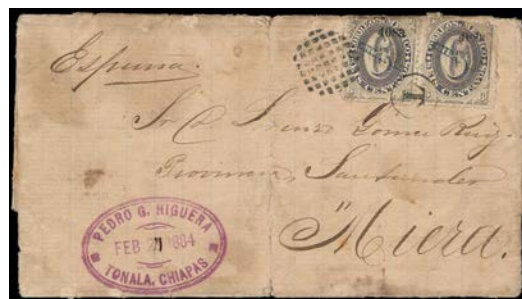 1083
6
6
T
España.
Sr. D. Lorenzo Gomez Ruiz.
Provincia, Santander
Miera.
PEDRO G. HIGUERA
FEB 1884
TONALA, CHIAPAS